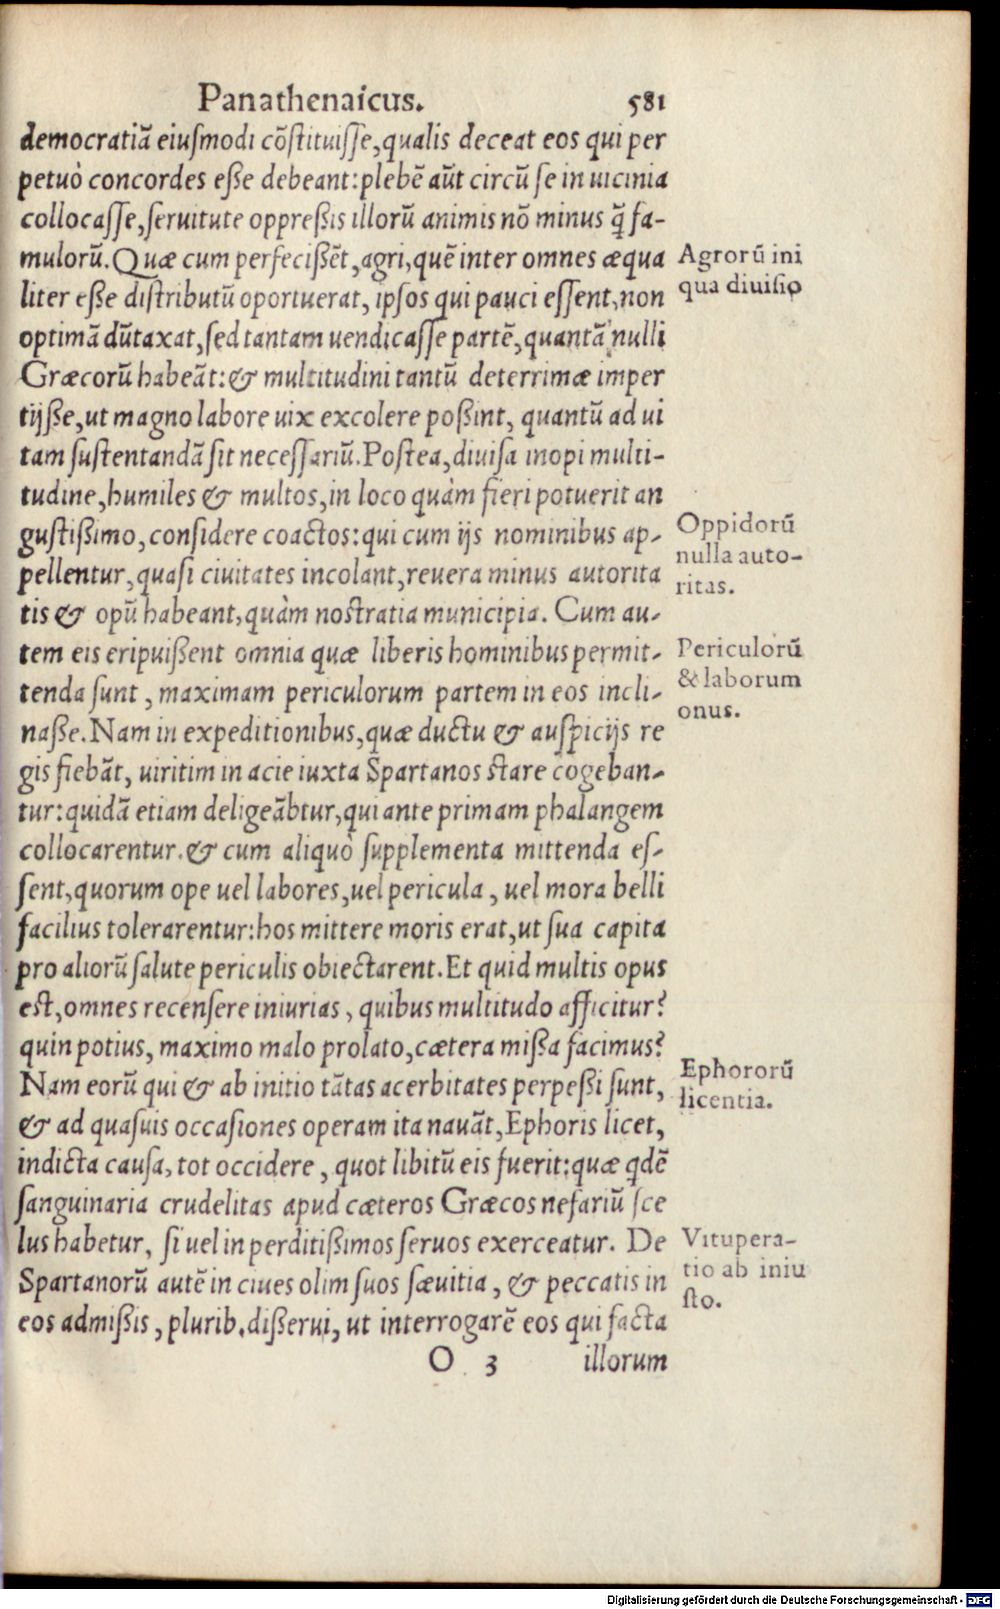 Panathenaicus. 581
democratiā eiuſmodi cōſtituiſſe, qualis deceat eos qui per
petuò concordes eße debeant: plebē aūt circū ſe in uicinia
collocaſſe, ſeruitute oppreßis illorū animis nō minus q̄ fa-
mulorū. Quæ cum perfecißēt, agri, quē inter omnes æqua
liter eße diſtributū oportuerat, ipſos qui pauci eſſent, non
optimā dūtaxat, ſed tantam uendicaſſe partē, quantā nulli
Græcorū habeāt: & multitudini tantū deterrimæ imper
tijße, ut magno labore uix excolere poßint, quantū ad ui
tam ſuſtentandā ſit neceſſariū. Poſtea, diuiſa inopi multi-
tudine, humiles & multos, in loco quàm fieri potuerit an
guſtißimo, conſidere coactos: qui cum ijs nominibus ap-
pellentur, quaſi ciuitates incolant, reuera minus autorita
tis & opū habeant, quàm noſtratia municipia. Cum au-
tem eis eripuißent omnia quæ liberis hominibus permit-
tenda ſunt, maximam periculorum partem in eos incli-
naße. Nam in expeditionibus, quæ ductu & auſpicijs re
gis fiebāt, uiritim in acie iuxta Spartanos ſtare cogeban-
tur: quidā etiam deligeābtur, qui ante primam phalangem
collocarentur. & cum aliquò ſupplementa mittenda eſ-
ſent, quorum ope uel labores, uel pericula, uel mora belli
facilius tolerarentur: hos mittere moris erat, ut ſua capita
pro aliorū ſalute periculis obiectarent. Et quid multis opus
eſt, omnes recenſere iniurias, quibus multitudo afficitur?
quin potius, maximo malo prolato, cætera mißa facimus?
Nam eorū qui & ab initio tātas acerbitates perpeßi ſunt,
& ad quaſuis occaſiones operam ita nauāt, Ephoris licet,
indicta cauſa, tot occidere, quot libitū eis fuerit: quæ qdē
ſanguinaria crudelitas apud cæteros Græcos nefariū ſce
lus habetur, ſi uel in perditißimos ſeruos exerceatur. De
Spartanorū autē in ciues olim ſuos ſæuitia, & peccatis in
eos admißis, plurib. dißerui, ut interrogarē eos qui facta
O 3 illorum
Agrorū ini
qua diuiſio
Oppidorū
nulla auto-
ritas.
Periculorū
& laborum
onus.
Ephororū
licentia.
Vitupera-
tio ab iniu
ſto.
Digitalisierung gefördert durch die Deutsche Forschungsgemeinschaft - DFG